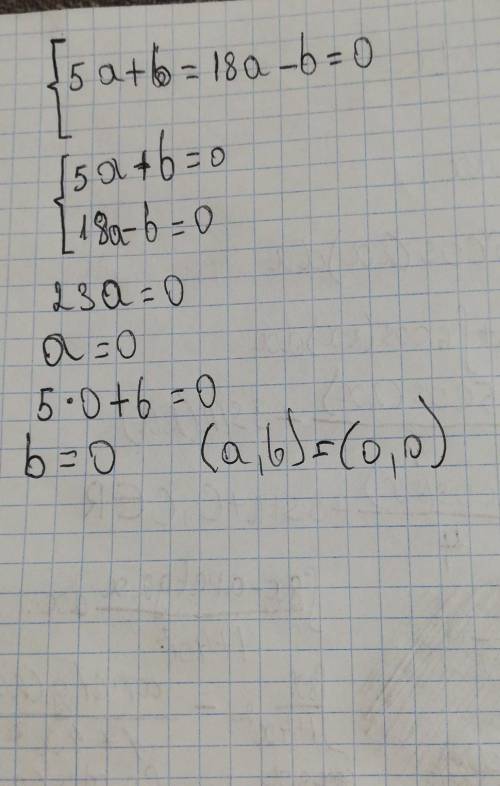 {5a+b=18a-b=0
{5a+b=0
18a-b=0
23a=0
a=0
5·0+b=0
b=0 (a,b)=(0,0)